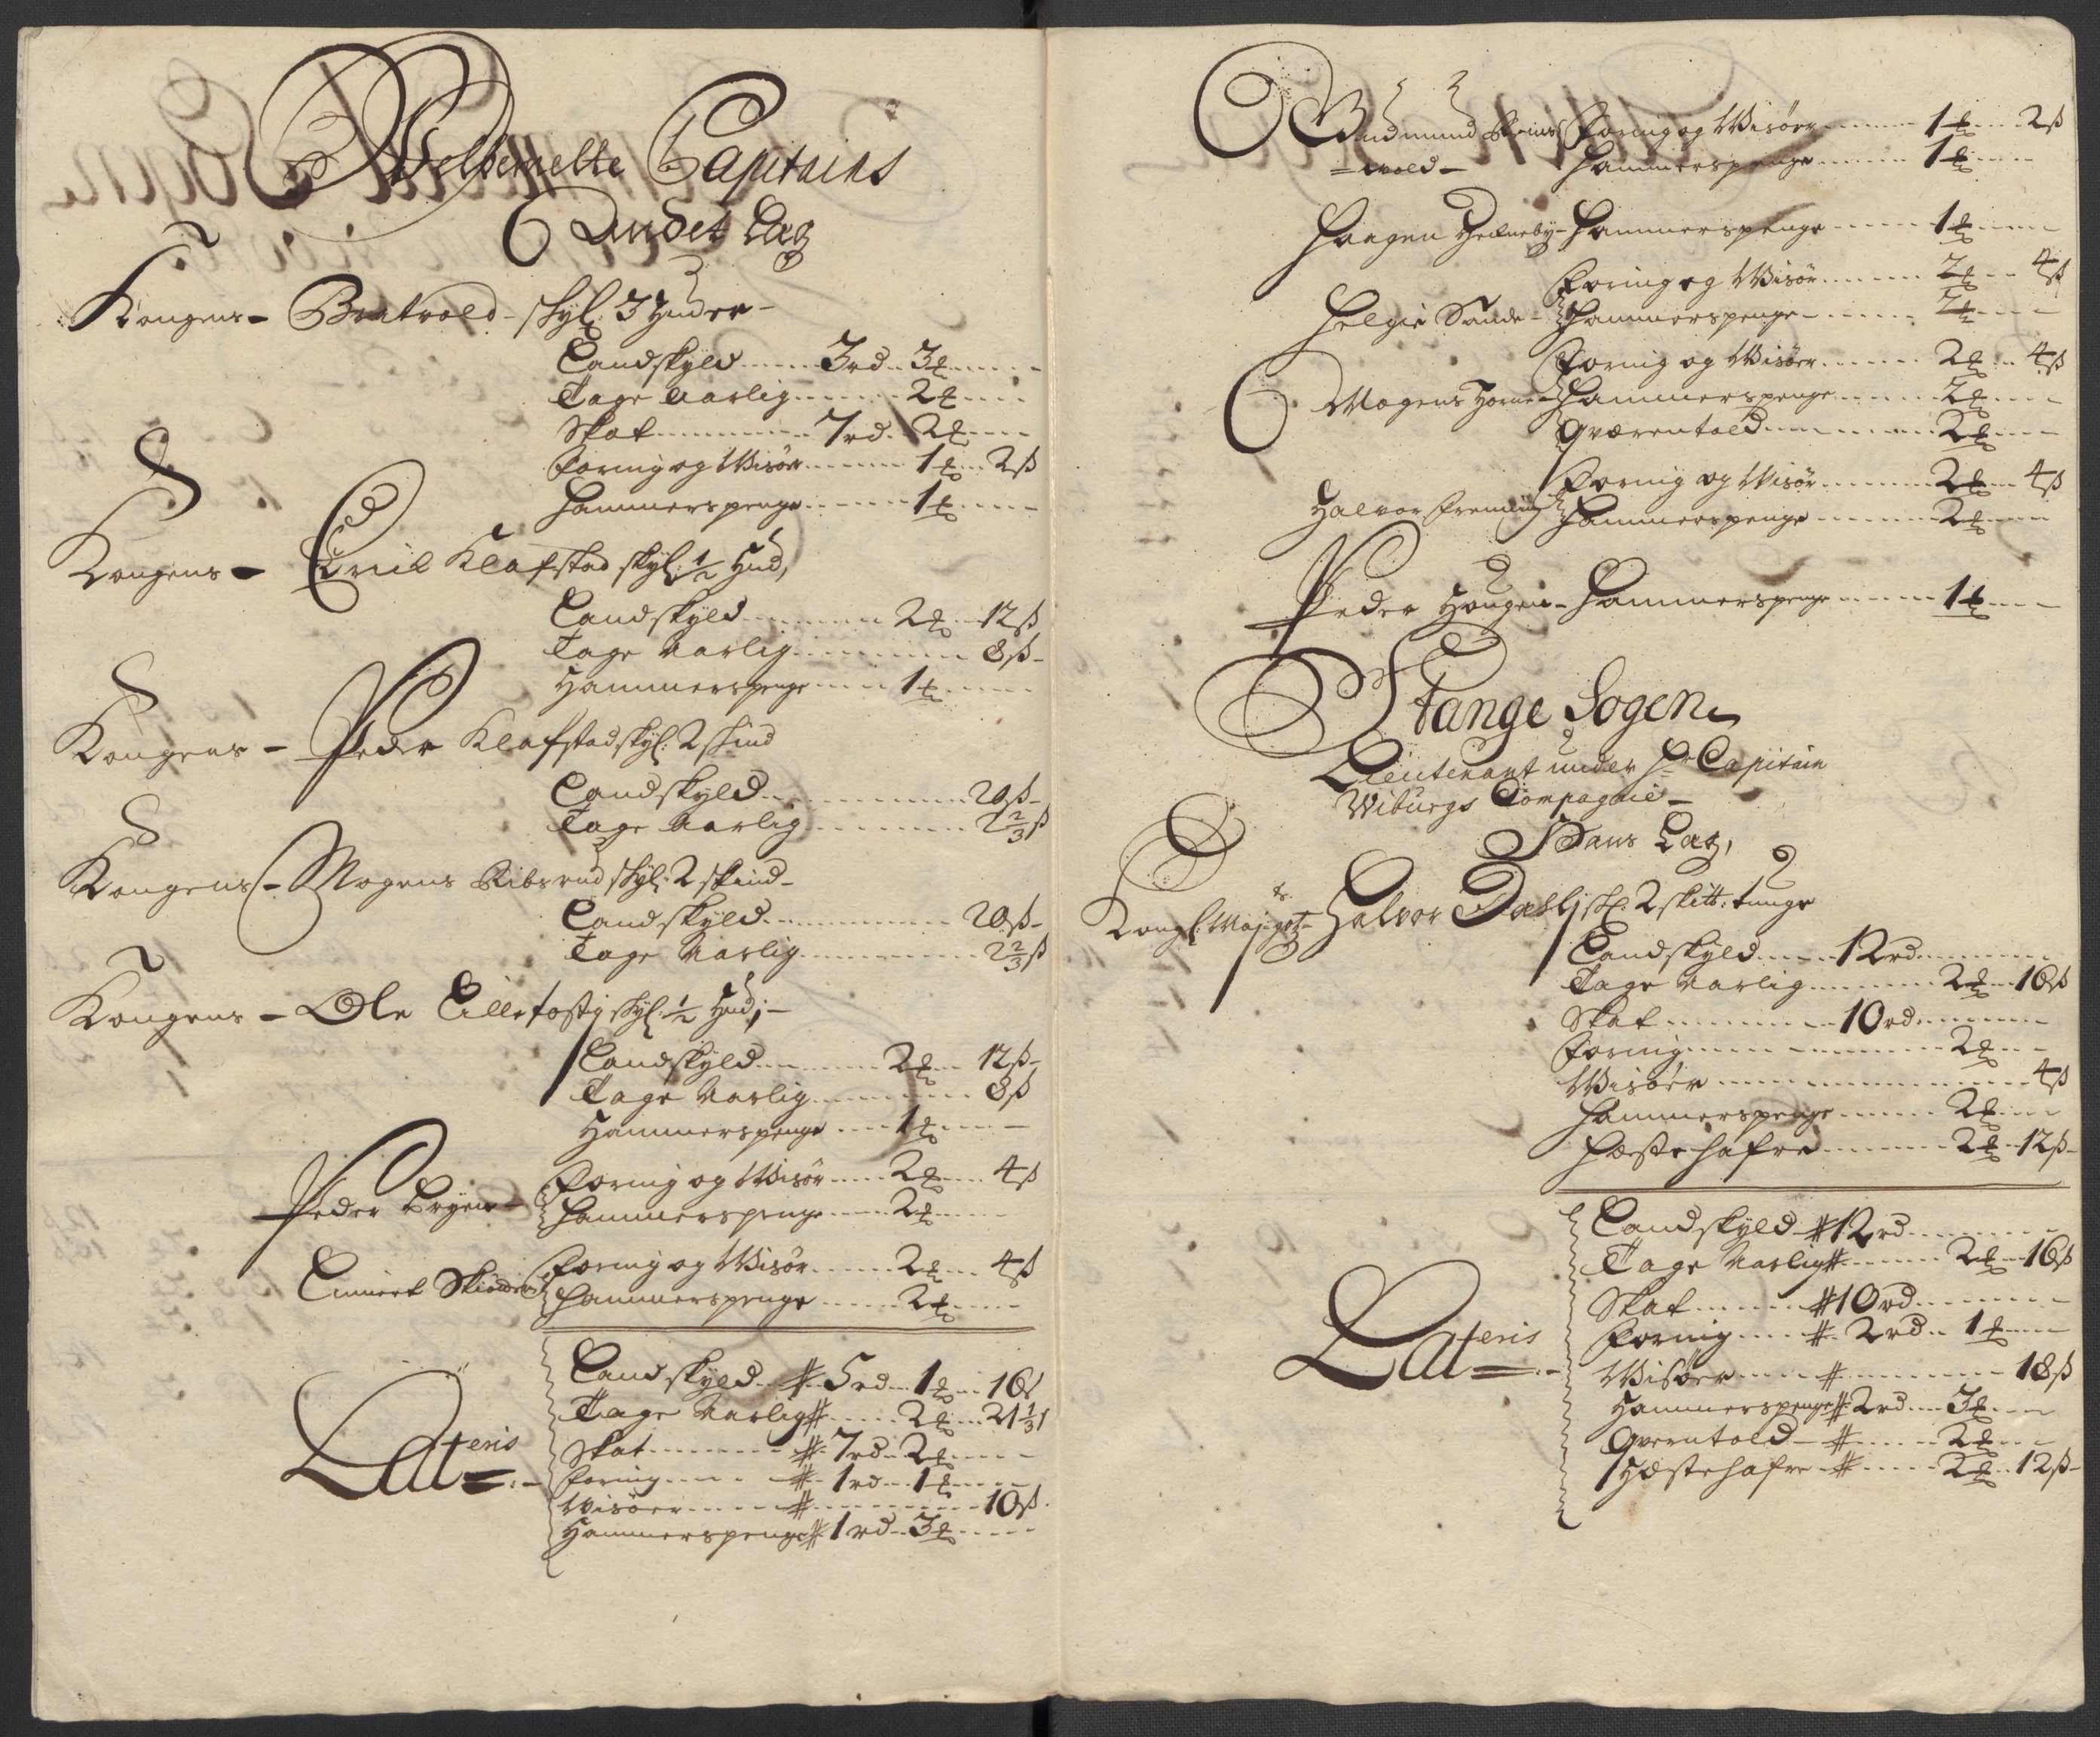 Velbemelte Capitains
Andet Lag
Kongens - Bratvold - skyl: 3 Huder -
Landskyld ..... 3 rd .. 3 ₰ .....
Tage Aarlig ..... 2 ₰ ....
Skat ..... 7 rd .. 2 ₰ ....
Foring og Wisör ..... 1 ₰ .. 2 ß
Hammerspenge ..... 1 ₰ ....
Kongens - Klafstad skyl: ½ Hud,
Landskyld ..... 2 ₰ .. 12 ß
Tage Aarlig ..... 8 ß -
Hammerspenge .... 1 ₰ ....
Kongens - Peder Klafstad skyl: 2 skind
Landskyld ..... 20 ß -
Tage Aarlig ..... 2⅔ ß
Kongens - Mogens Ribsrud skyl: 2 skind -
Landskyld ..... 20 ß -
Tage Aarlig ..... 2⅔ ß
Kongens - Ole Lilletofty skyl: ½ Hud; -
Landskyld ..... 2 ₰ .. 12 ß -
Tage Aarlig ..... 8 ß
Hammerspenge .... 1 ₰ ....
Peder Bryni - Foring og Wisör ..... 2 ₰ .... 4 ß
Hammerspenge ..... 2 ₰ ....
Foring og Wisör ..... 2 ₰ ... 4 ß
Hammerspenge ..... 2 ₰ ....
Landskyld # 5 rd .. 1 ₰ .. 16 ß
Tage Aarlig # ..... 2 ₰ .. 21⅓ ß
Skat ..... # 7 rd .. 2 ₰ ....
Lateris
Foring .... # 1 rd .. 1 ₰ ....
Wisöer ..... # ..... 10 ß
Hammerspenge # 1 rd .. 3 ₰ ....
Gudmund Foring og Wisöer ..... 1 ₰ .... 2 ß
= wold - Hammerspenge ..... 1 ₰ ....
Haagen Hekneby - Hammerspenge ..... 1 ₰ ....
Foring og Wisör ..... 2 ₰ .. 4 ß
Helgie Sande - Hammerspenge ..... 2 ₰ ....
Foring og Wisöer ..... 2 ₰ .. 4 ß
Mogens Horne - Hammerspenge ..... 2 ₰ ....
Qværentold ..... 2 ₰ ....
Foring og Wisör ..... 2 ₰ .. 4 ß
Halvor Hammerspenge ..... 2 ₰ ....
Peder Hougen - Hammerspenge ..... 1 ₰ ....
Stange Sogen
Lieutenant under Hr Capitain
Wiburgs Compagnie -
Hans Lag,
Kongl: Majts - Halvor Dahl, sk: 2 skitt: tunge
Landskyld ..... 12 rd .....
Tage Aarlig ..... 2 ₰ .. 16 ß
Skat ..... 10 rd .....
Foring ..... 2 ₰ ...
Wisöer ..... 4 ß
Hammerspenge ..... 2 ₰ ....
Hæstehafre ..... 2 ₰ .. 12 ß -
Landskyld # 12 rd .....
Tage Aarlig # ..... 2 ₰ .. 16 ß
Skat ..... # 10 rd .....
Foring .... # 2 rd .. 1 ₰ ...
Lateris
Wisöer .... # ..... 18 ß
Hammerspenge # 2 rd ... 3 ₰ ...
Qverntold - # ..... 2 ₰ ...
Hæstehafre # ..... 2 ₰ .. 12 ß -